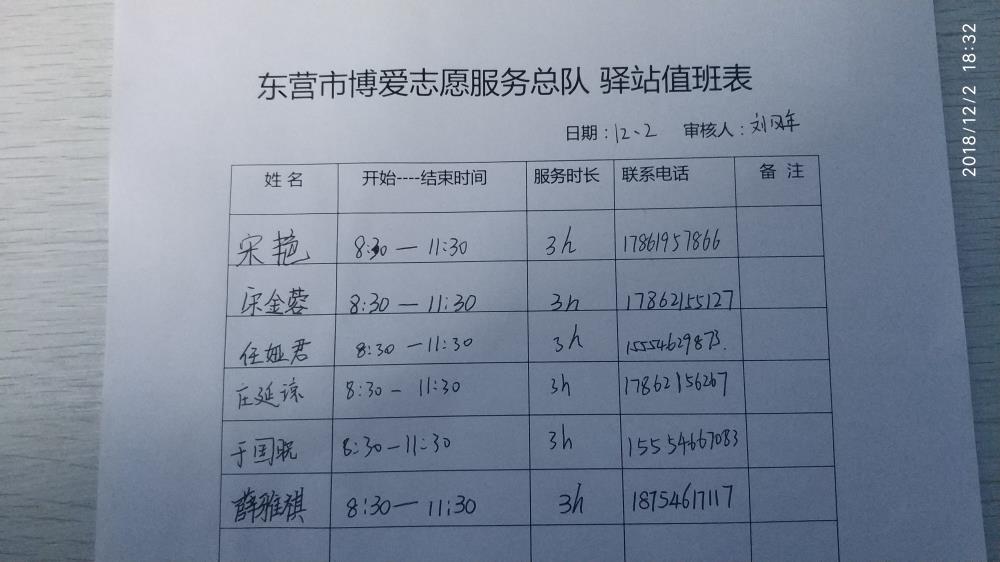 东营市博爱志愿服务总队 驿站值班表
日期：12、2 审核人：刘风年
姓 名 开始----结束时间 服务时长 联系电话 备 注
宋艳 8:30 — 11:30 3h 17861957866
宋金蓉 8:30 — 11:30 3h 17862155127
任娅君 8:30 — 11:30 3h 15554629873.
庄延谅 8:30 — 11:30 3h 17862156267
于国晓 8:30 — 11:30 3h 15554667083
薛雅祺 8:30 — 11:30 3h 18754617117
2018/12/2 18:32